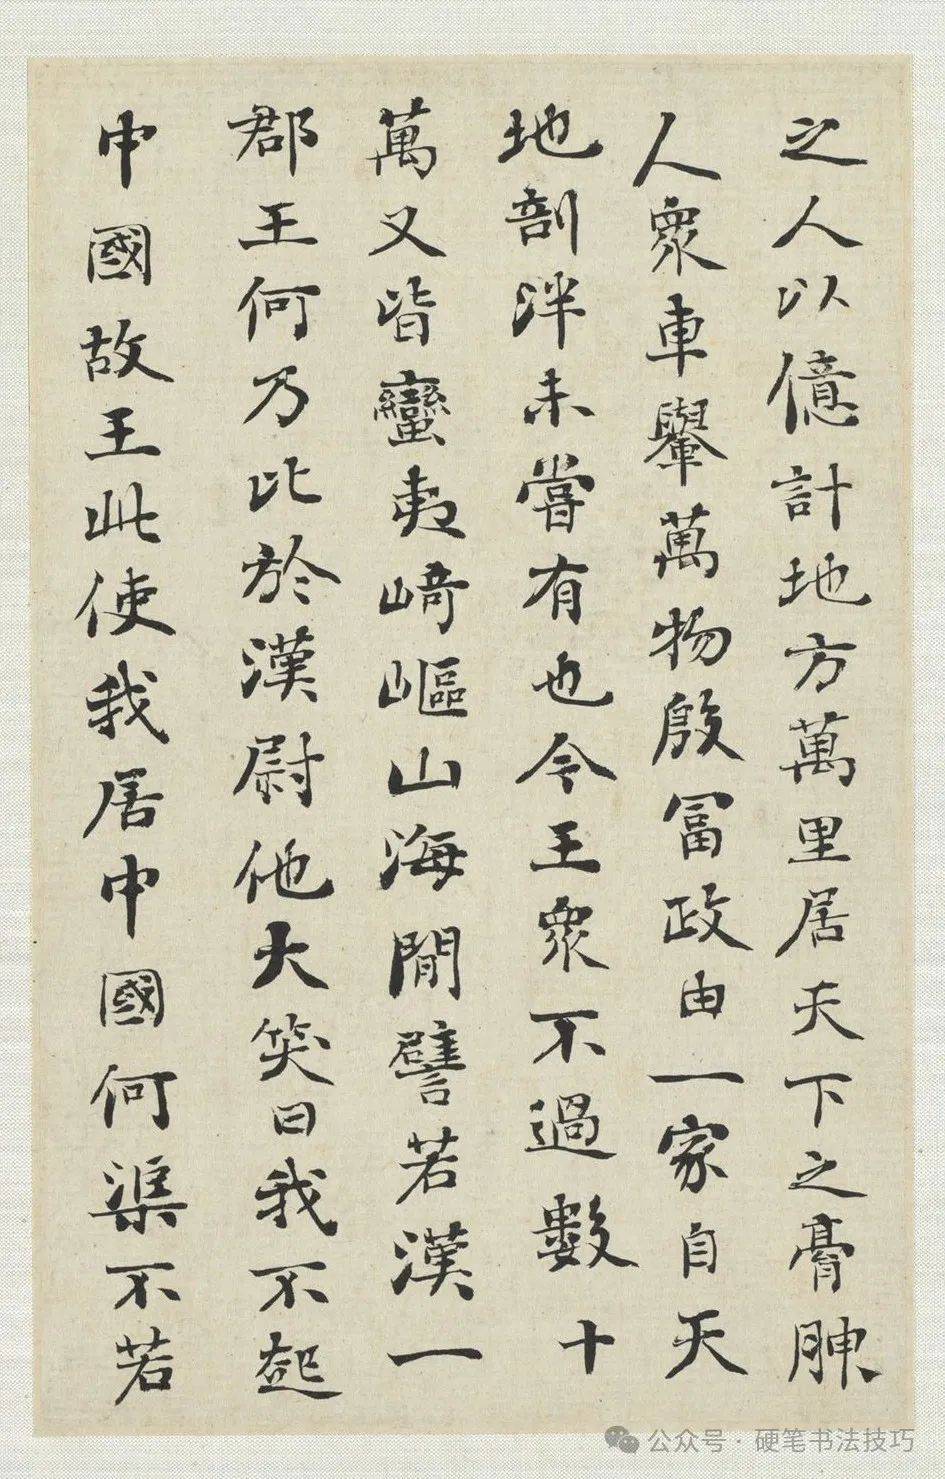 之人以億計地方萬里居天下之膏腴
人衆車轝萬物殷冨政由一家自天
地剖泮未嘗有也令王衆不過數十
萬又皆蠻夷崎嶇山海閒譬若漢一
郡王何乃比於漢尉他大笑曰我不起
中國故王此使我居中國何渠不若
公众号·硬笔书法技巧